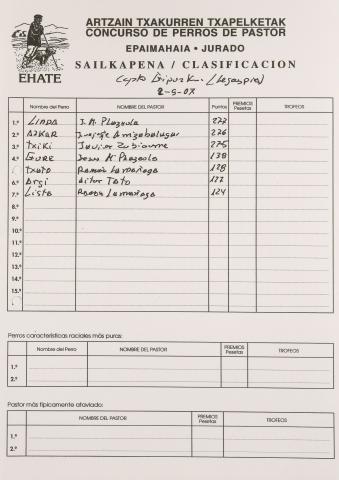 ARTZAIN TXAKURREN TXAPELKETAK
CONCURSO DE PERROS DE PASTOR
EPAIMAHAIA • JURADO
SAILKAPENA / CLASIFICACION
EHATE
Cpto Gipuzk. (Legazpia)
2-9-07
Nombre del Perro NOMBRE DEL PASTOR Puntos PREMIOS Pesetas TROFEOS
1.º LINDA J. M. Plazaola 277
2.º AZKAR Arrizabalaga 276
3.º TXIKI Javier Zubiaurre 275
4.º GURE Jean M Plazaola 138
Txato Ramon Lamariaga 128
6.º Argi Aitor Toto 127
7.º Lista Ramon Lamariaga 124
8.º
9.º
10.º
11.º
12.º
13.º
14.º
15.º
Perros características raciales más puras:
Nombre del Perro NOMBRE DEL PASTOR PREMIOS Pesetas TROFEOS
1.º
2.º
Pastor más típicamente ataviado:
NOMBRE DEL PASTOR PREMIOS Pesetas TROFEOS
1.º
2.º